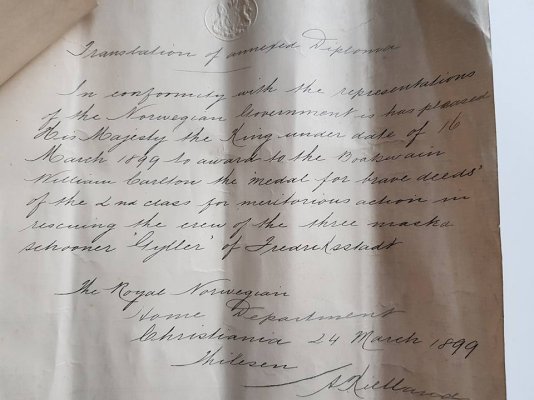 Translation of annexed Diploma
In conformity with the representations
of the Norwegian Government is has pleased
His Majesty the King under date of 16
March 1899 to award to the Boatswain
William Carlton the 'medal for brave deeds'
of the 2nd class for meritorious action in
rescuing the crew of the three masked
schooner 'Gyller' of Fredriksstadt
The Royal Norwegian
Home Department
Christiania 24 March 1899
Thilesen